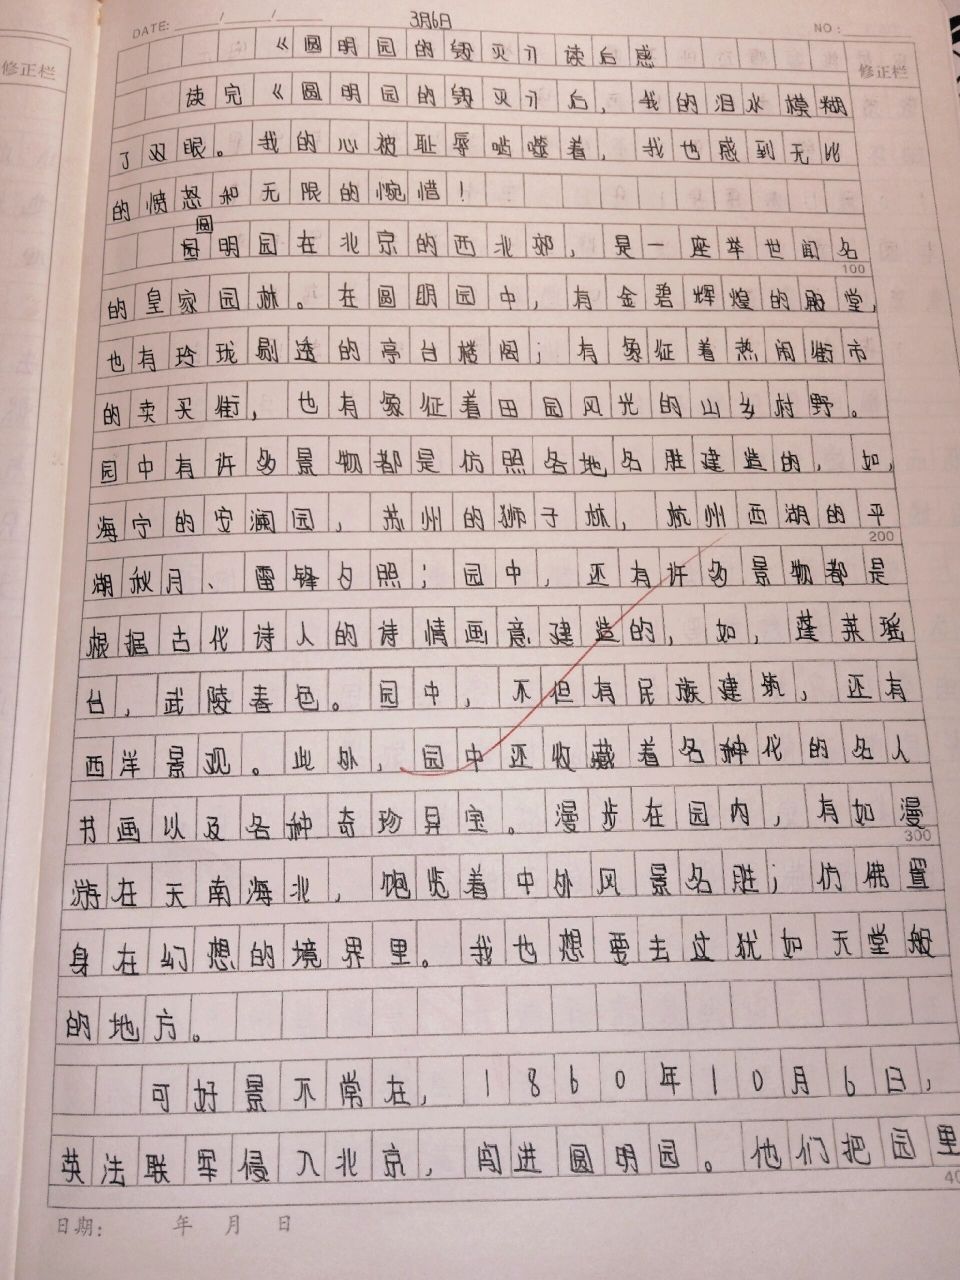 3月6日
DATE: / /
NO:
《圆明园的毁灭》读后感
修正栏
修正栏
读完《圆明园的毁灭》后，我的泪水模糊
了双眼。我的心被耻辱啮噬着，我也感到无比
的愤怒和无限的惋惜！
圆
明园在北京的西北郊，是一座举世闻名
100
的皇家园林。在圆明园中，有金碧辉煌的殿堂，
也有玲珑剔透的亭台楼阁；有象征着热闹街市
的卖买街，也有象征着田园风光的山乡村野。
园中有许多景物都是仿照各地名胜建造的，如，
海宁的安澜园，苏州的狮子林，杭州西湖的平
200
湖秋月、雷锋夕照；园中，还有许多景物都是
根据古代诗人的诗情画意建造的，如，蓬莱瑶
台，武陵春色。园中，不但有民族建筑，还有
西洋景观。此外，园中还收藏着各种化的名人
书画以及各种奇珍异宝。漫步在园内，有如漫
300
游在天南海北，饱览着中外风景名胜；仿佛置
身在幻想的境界里。我也想要去这犹如天堂般
的地方。
可好景不常在，1860年10月6日，
英法联军侵入北京，闯进圆明园。他们把园里
40
日期： 年 月 日